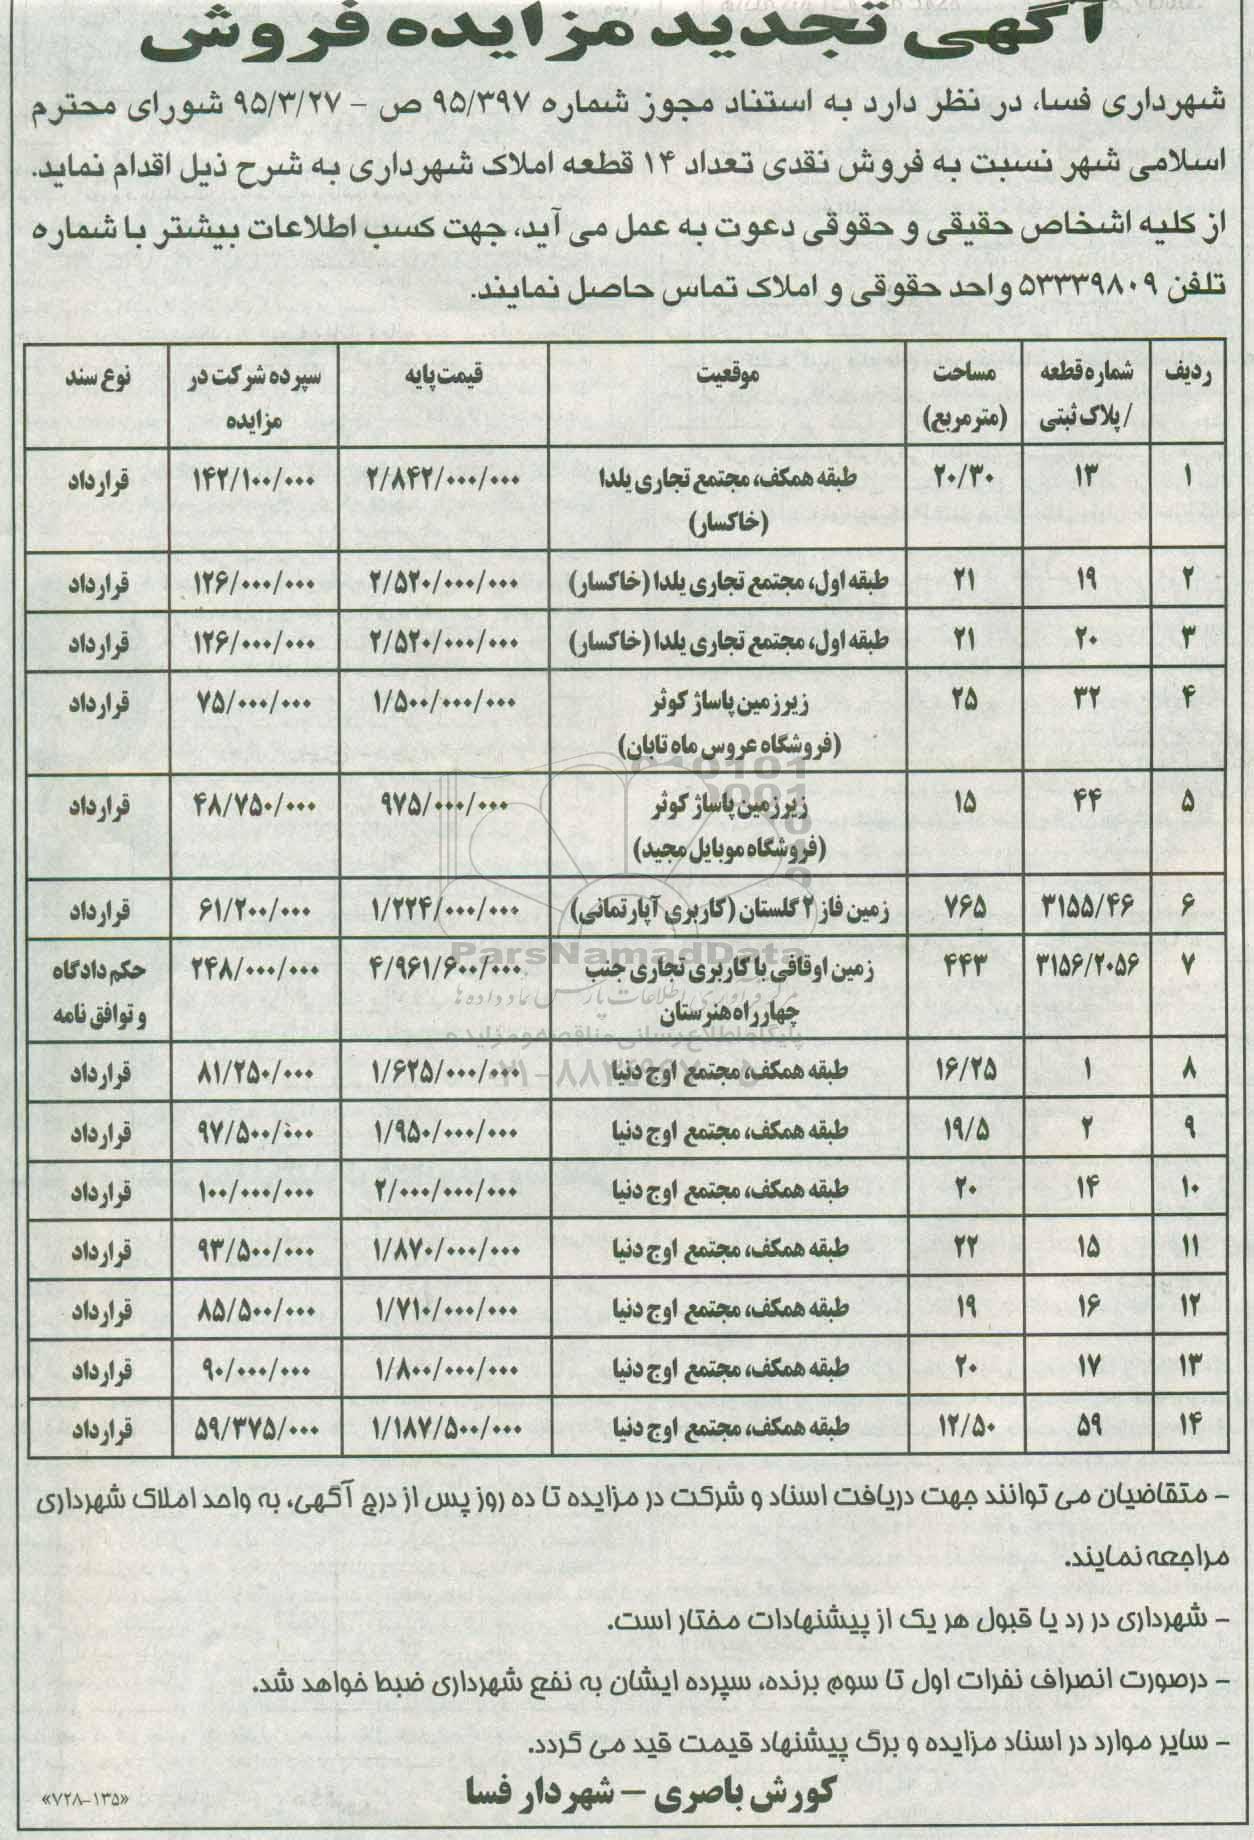 آگهی تجدید مزایده فروش
شهرداری فسا، در نظر دارد به استناد مجوز شماره ۹۵/۳۹۷ ص - ۹۵/۳/۲۷ شورای محترم
اسلامی شهر نسبت به فروش نقدی تعداد ۱۴ قطعه املاک شهرداری به شرح ذیل اقدام نماید.
از کلیه اشخاص حقیقی و حقوقی دعوت به عمل می آید، جهت کسب اطلاعات بیشتر با شماره
تلفن ۵۳۳۳۹۸۰۹ واحد حقوقی و املاک تماس حاصل نمایند.
ردیف شماره قطعه / پلاک ثبتی مساحت (مترمربع) موقعیت قیمت پایه سپرده شرکت در مزایده نوع سند
۱ ۱۳ ۲۰/۳۰ طبقه همکف، مجتمع تجاری یلدا (خاکسار) ۲/۸۴۲/۰۰۰/۰۰۰ ۱۴۲/۱۰۰/۰۰۰ قرارداد
۲ ۱۹ ۲۱ طبقه اول، مجتمع تجاری یلدا (خاکسار) ۲/۵۲۰/۰۰۰/۰۰۰ ۱۲۶/۰۰۰/۰۰۰ قرارداد
۳ ۲۰ ۲۱ طبقه اول، مجتمع تجاری یلدا (خاکسار) ۲/۵۲۰/۰۰۰/۰۰۰ ۱۲۶/۰۰۰/۰۰۰ قرارداد
۴ ۳۲ ۲۵ زیرزمین پاساژ کوثر (فروشگاه عروس ماه تابان) ۱/۵۰۰/۰۰۰/۰۰۰ ۷۵/۰۰۰/۰۰۰ قرارداد
۵ ۴۴ ۱۵ زیرزمین پاساژ کوثر (فروشگاه موبایل مجید) ۹۷۵/۰۰۰/۰۰۰ ۴۸/۷۵۰/۰۰۰ قرارداد
۶ ۳۱۵۵/۴۶ ۷۶۵ زمین فاز ۲ گلستان (کاربری آپارتمانی) ۱/۲۲۴/۰۰۰/۰۰۰ ۶۱/۲۰۰/۰۰۰ قرارداد
۷ ۳۱۵۶/۲۰۵۶ ۴۴۳ زمین اوقافی با کاربری تجاری جنب چهارراه هنرستان ۴/۹۶۱/۶۰۰/۰۰۰ ۲۴۸/۰۰۰/۰۰۰ حکم دادگاه و توافق نامه
۸ ۱ ۱۶/۲۵ طبقه همکف، مجتمع اوج دنیا ۱/۶۲۵/۰۰۰/۰۰۰ ۸۱/۲۵۰/۰۰۰ قرارداد
۹ ۲ ۱۹/۵ طبقه همکف، مجتمع اوج دنیا ۱/۹۵۰/۰۰۰/۰۰۰ ۹۷/۵۰۰/۰۰۰ قرارداد
۱۰ ۱۴ ۲۰ طبقه همکف، مجتمع اوج دنیا ۲/۰۰۰/۰۰۰/۰۰۰ ۱۰۰/۰۰۰/۰۰۰ قرارداد
۱۱ ۱۵ ۲۲ طبقه همکف، مجتمع اوج دنیا ۱/۸۷۰/۰۰۰/۰۰۰ ۹۳/۵۰۰/۰۰۰ قرارداد
۱۲ ۱۶ ۱۹ طبقه همکف، مجتمع اوج دنیا ۱/۷۱۰/۰۰۰/۰۰۰ ۸۵/۵۰۰/۰۰۰ قرارداد
۱۳ ۱۷ ۲۰ طبقه همکف، مجتمع اوج دنیا ۱/۸۰۰/۰۰۰/۰۰۰ ۹۰/۰۰۰/۰۰۰ قرارداد
۱۴ ۵۹ ۱۲/۵۰ طبقه همکف، مجتمع اوج دنیا ۱/۱۸۷/۵۰۰/۰۰۰ ۵۹/۳۷۵/۰۰۰ قرارداد
ParsNamadData
مرکز فرآوری اطلاعات پارس نماد داده ها
پایگاه اطلاع رسانی مناقصه و مزایده
- متقاضیان می توانند جهت دریافت اسناد و شرکت در مزایده تا ده روز پس از درج آگهی، به واحد املاک شهرداری
مراجعه نمایند.
- شهرداری در رد یا قبول هر یک از پیشنهادات مختار است.
- درصورت انصراف نفرات اول تا سوم برنده، سپرده ایشان به نفع شهرداری ضبط خواهد شد.
- سایر موارد در اسناد مزایده و برگ پیشنهاد قیمت قید می گردد.
کورش باصری - شهردار فسا
«۷۲۸-۱۳۵»